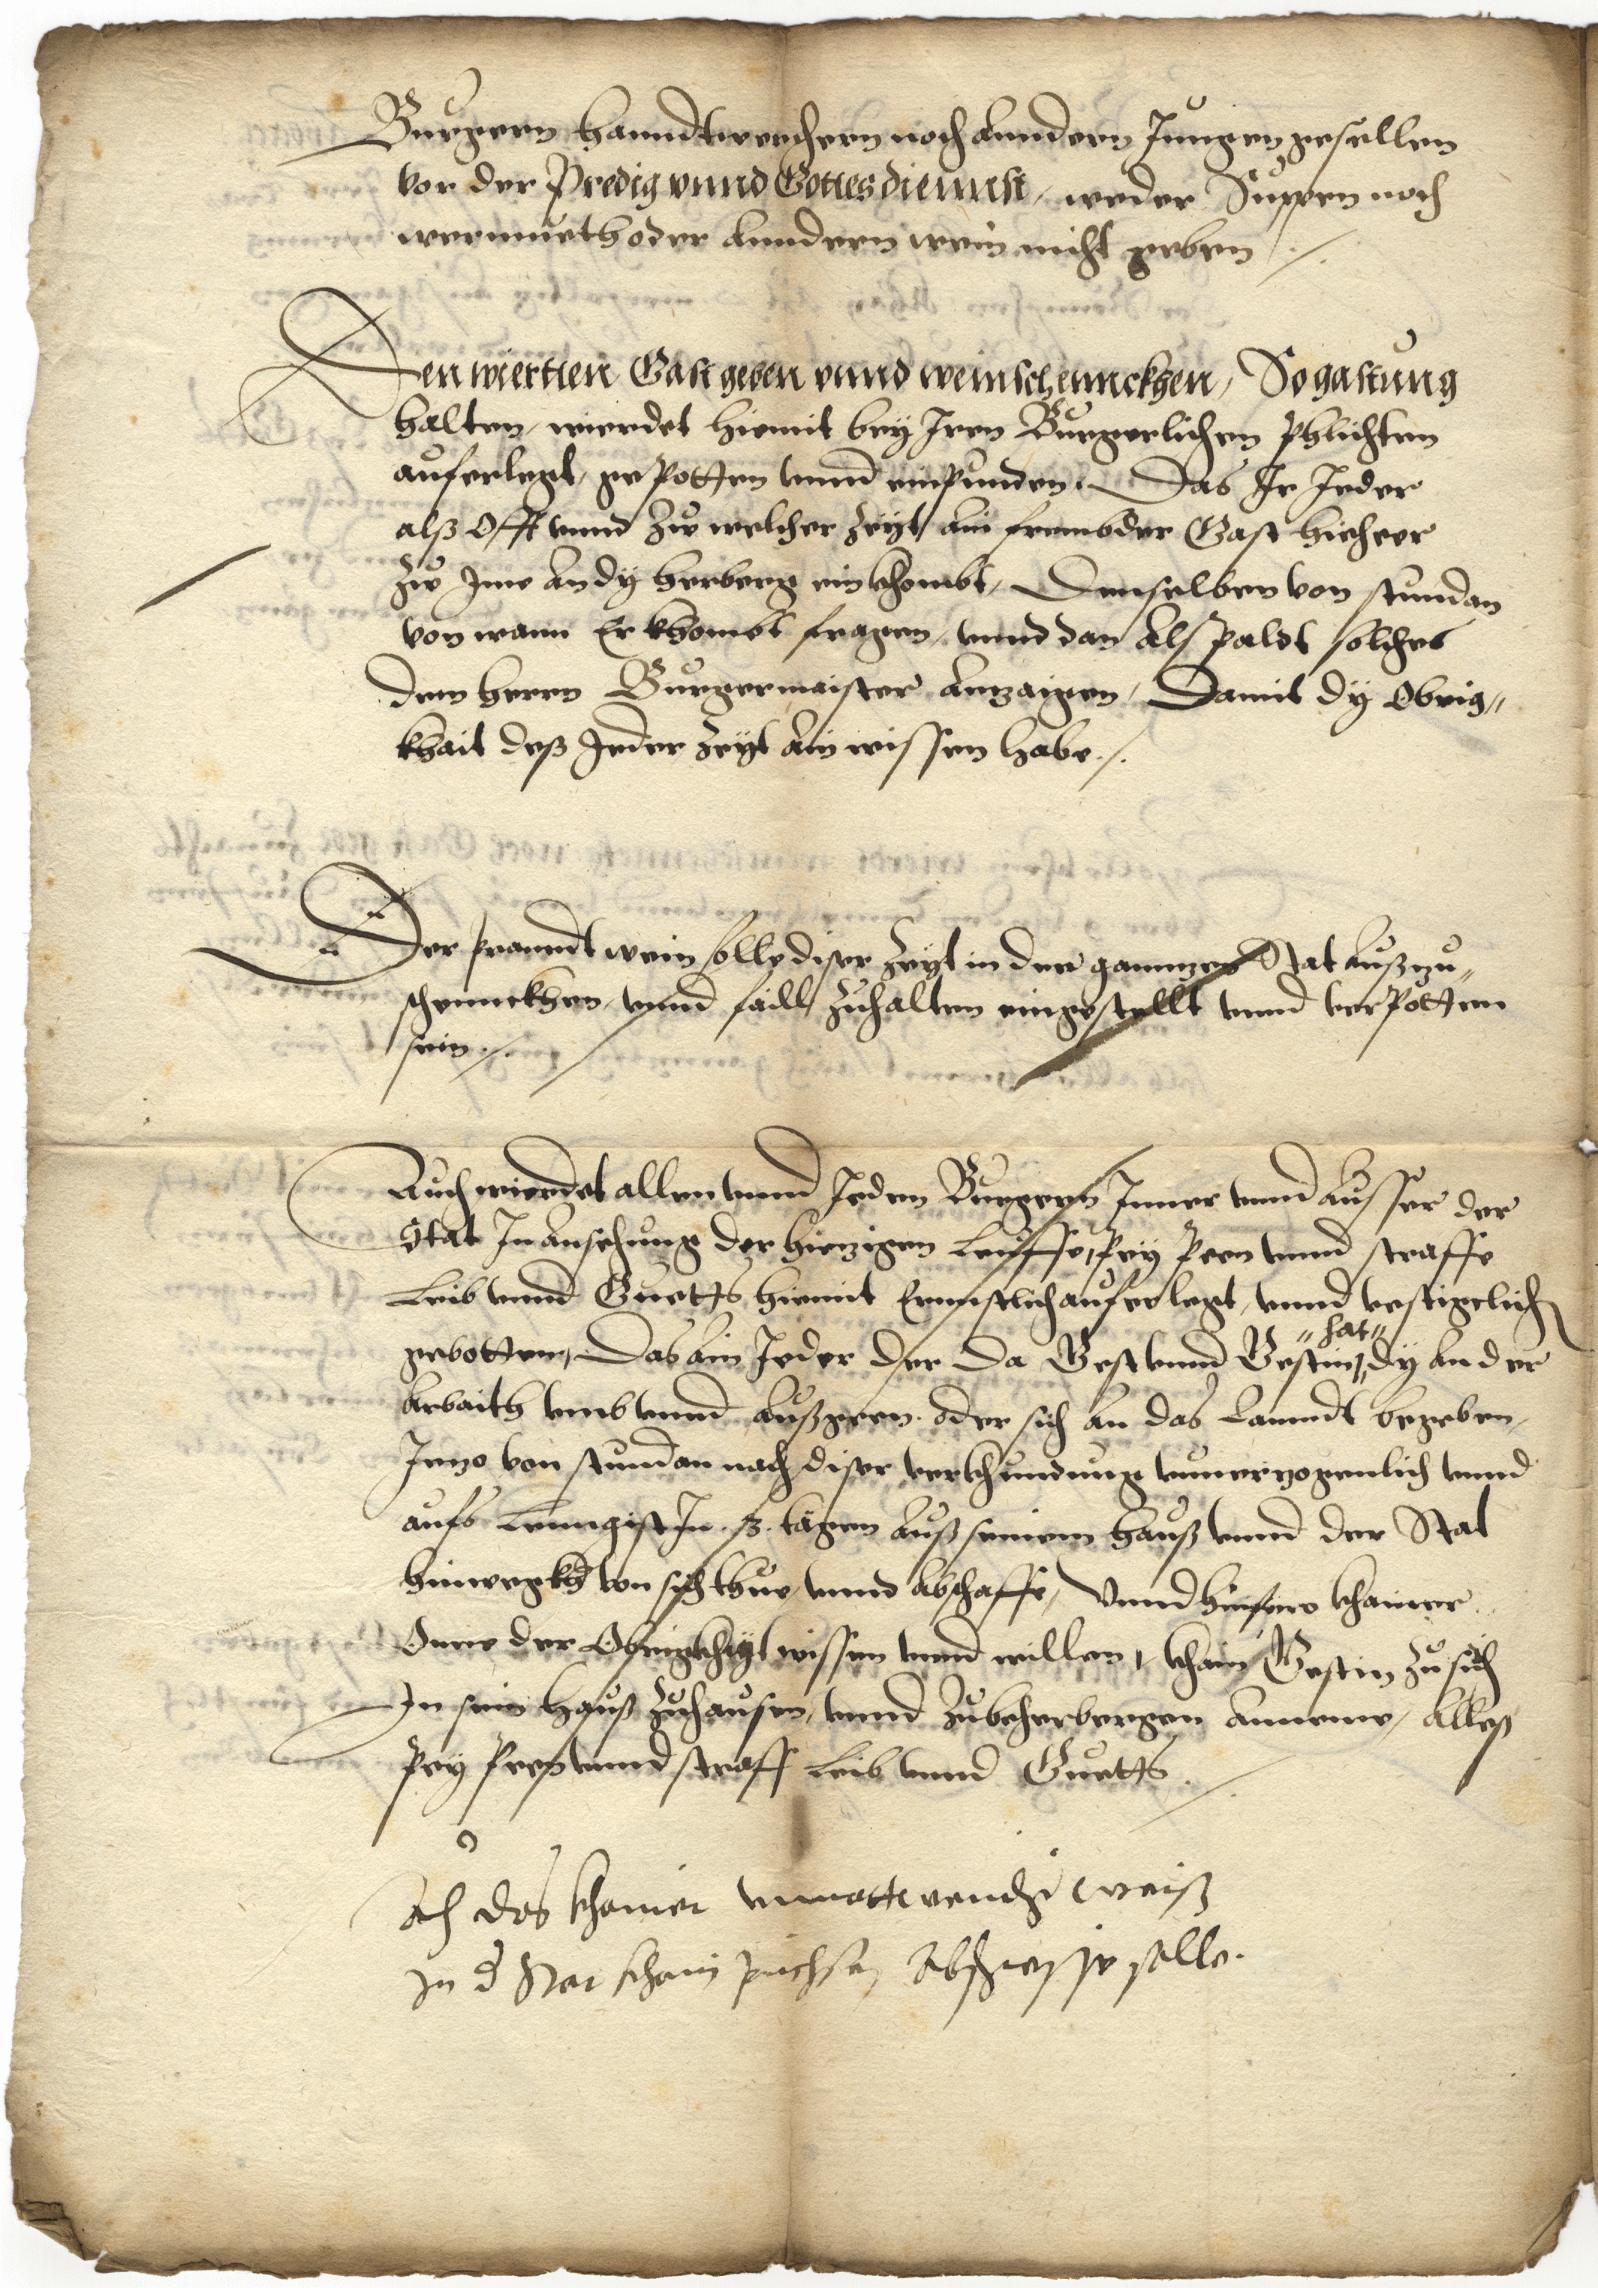 Burgern hanndtwerchern noch anndern Jungen gesellen
vor der Predig vnnd Gottesdiennst, weder Suppen noch
wermueth oder anndern wein nicht geben ./.
Den wierten Gastgeben vnnd weinschennckhen, So gastung
halten, wierdet hiemit bey Iren Burgerlichen Phlichten
auferlegt, gePotten vnnd einpunden. Das Ir Jeder
alß Offt vnnd zw welcher Zeyt ain frembder Gast hieheer
zw Ime an dÿ herberg ein khombt, Denselben von stundan
von wann Er khombt fragen, vnnd dan als paldt solches
dem herrn Burgermaister anzaigen, Damit dÿ Obrig„
khait deß Jeder Zeyt ain wissen habe ./.
Der pranndtwein solle diser Zeyt in der ganntzen Stat außzu„
schennckhen, vnnd faill zuhalten eingestellt vnnd verPotten
sein ./.
Auch wierdet allen vnnd Jeden Burgern Inner vnnd ausser der
Stat In ansehung der hietzigen Leuffe, Peÿ Peen vnnd straffe
Leib vnnd Guetts hiemit Ernnstlich auferlegt, vnnd vestigclich
gebotten, Das ain Jeder der Da Gest vnnd Gestin „hat„ dÿ an der
arbaith vmb vnnd außgeen oder sich an das Lanndt begeben,
Jetzo von stundan nach diser verkhundung vnuerzogenlich vnnd
aufs Lenngist In tagen auß seinem hauß vnnd der Stat
hinwegkh von sich thue, vnnd abschaffe, Vnnd hinfuro khainer
One der Obrigkheyt wissen vnnd willen, khain Gestin zu sich
In sein hauß zuhausen, vnnd zubeherbergen anneme, alles
Peÿ Peen vnnd straff Leib vnnd Guetts ./.
das khainer weiß
In d Stat khain puchsen abschiessn solle.